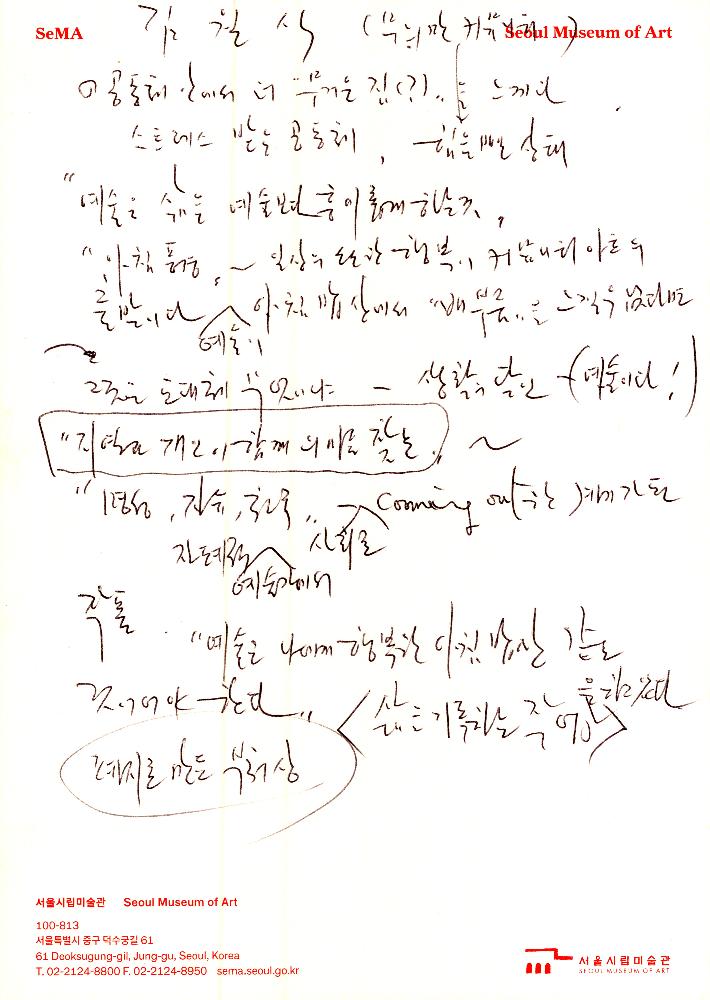 SeMA Seoul Museum of Art
김 월 식 (무늬만 커뮤니티)
공동체 안에서 더 "무거운 짐(?)"을 느끼다
스트레스 받는 공동체, 힘을 뺀 상태
"예술은 삶을 예술보다 흥미롭게 하는 것"
"아침 풍경" ~ 일상의 소소한 행복이 커뮤니티 아트의
출발이다 아침 밥상에서 "배부름"을 느끼고 있다면
예술이
그것은 도대체 무엇이냐 — 생활의 달인 (예술이다!)
"지역과 개인이 함께 의미를 찾는" ~
" coming out(하는) 계기가 된
사회로
예술가에서
작품 "예술은 나에게 행복한 아침 밥상 같은
것이어야 한다" <삶을 기록하는 작업>
폐지로 만든 부처상
서울시립미술관 Seoul Museum of Art
100-813
서울특별시 중구 덕수궁길 61
61 Deoksugung-gil, Jung-gu, Seoul, Korea
T. 02-2124-8800 F. 02-2124-8950 sema.seoul.go.kr
서울시립미술관
SEOUL MUSEUM OF ART